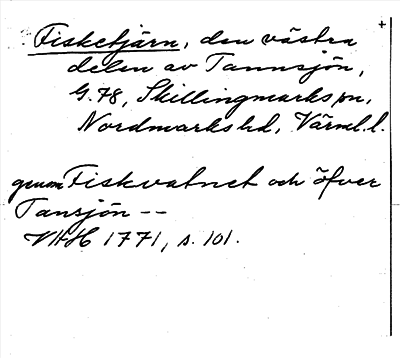 +
Fisketjärn, den västra
delen av Tannsjön,
G.78, Skillingmarks sn,
Nordmarks hd, Värml. l.
genom Fiskvatnet och öfver
Tansjön --
1771, s. 101.